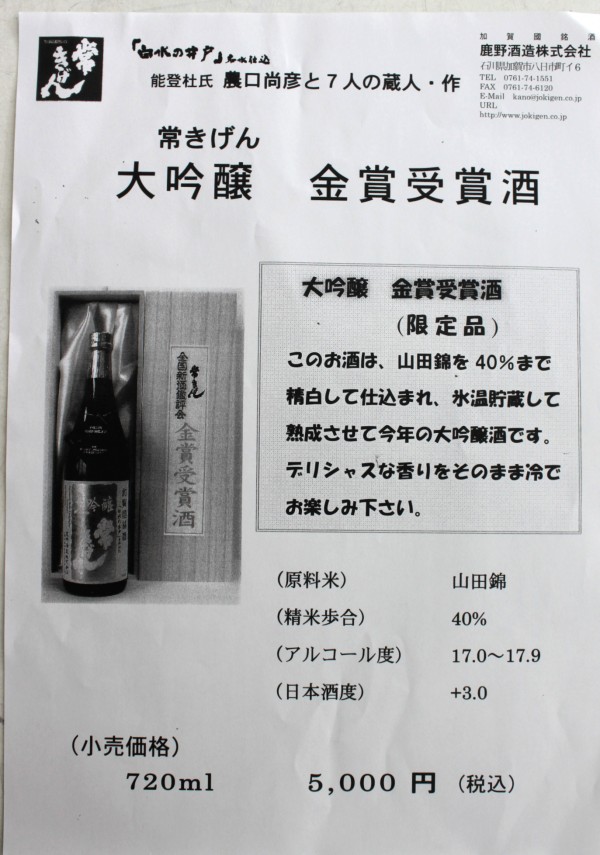 常きげん
「白水の井戸」名水仕込
能登杜氏 農口尚彦と7人の蔵人・作
加賀國銘酒
鹿野酒造株式会社
石川県加賀市八日市町イ6
TEL 0761-74-1551
FAX 0761-74-6120
E-Mail kano@jokigen.co.jp
URL
http://www.jokigen.co.jp
常きげん
大吟醸 金賞受賞酒
大吟醸 金賞受賞酒
(限定品)
このお酒は、山田錦を40%まで
精白して仕込まれ、氷温貯蔵して
熟成させて今年の大吟醸酒です。
デリシャスな香りをそのまま冷で
お楽しみ下さい。
常きげん
全国新酒鑑評会
金賞受賞酒
大吟醸
常きげん
(原料米) 山田錦
(精米歩合) 40%
(アルコール度) 17.0~17.9
(日本酒度) +3.0
(小売価格)
720ml 5,000 円 (税込)